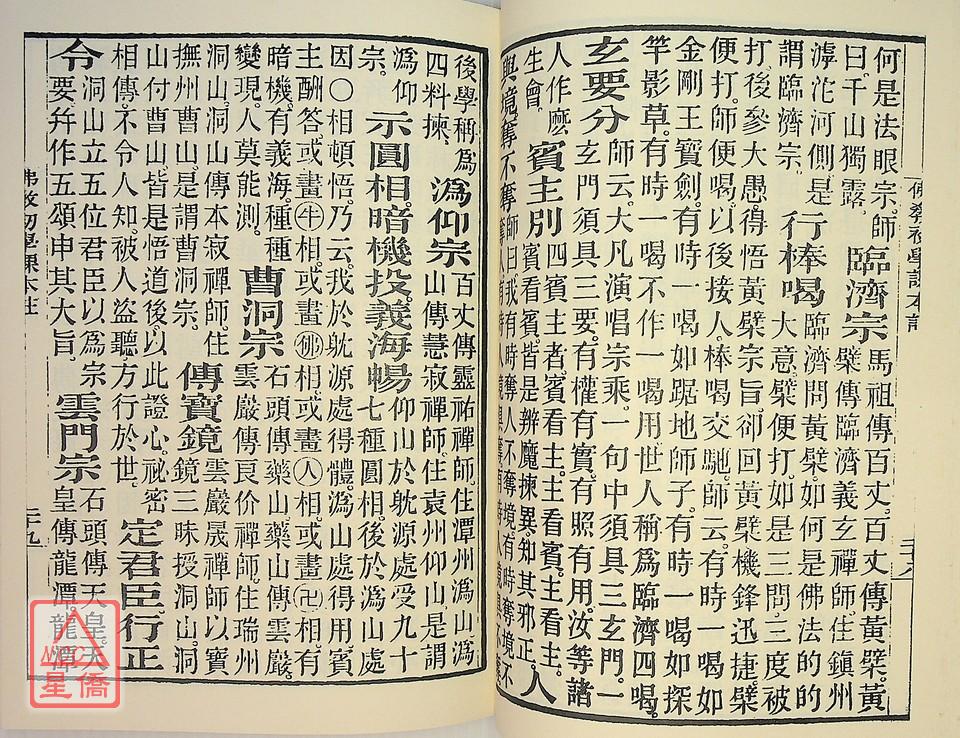 佛教初學課本註
二十八
何是法眼宗師
曰千山獨露。
臨濟宗
馬祖傳百丈。百丈傳黃檗。黃
檗傳臨濟義玄禪師。住鎮州
滹沱河側。是
謂臨濟宗。
行棒喝
臨濟問黃檗。如何是佛法的的
大意。檗便打。如是三問。三度被
打。後參大愚得悟黃檗宗旨。卻回黃檗。機鋒迅捷。檗
便打。師便喝。以後接人。棒喝交馳。師云。有時一喝如
金剛王寶劍。有時一喝如踞地師子。有時一喝如探
竿影草。有時一喝不作一喝用。世人稱爲臨濟四喝。
玄要分
師云。大凡演唱宗乘。一句中須具三玄門。一
玄門須具三要。有權有實。有照有用。汝等諸
人作麽
生會。
賓主別
四賓主者。賓看主。主看賓。主看主。
賓看賓。皆是辨魔揀異。知其邪正。
人
與境。奪不奪
師曰。我有時奪人不奪境。有時奪境不
後學稱爲
四料揀。
溈仰宗
百丈傳靈祐禪師。住潭州溈山。溈
山傳慧寂禪師。住袁州仰山。是謂
溈仰
宗。
示圓相。暗機投。義海暢
仰山於躭源處受九十
七種圓相。後於溈山處
因〇相頓悟。乃云。我於躭源處得體。溈山處得用。賓
主酬答。或畫牛相。或畫佛相。或畫人相。或畫卍相。有
暗機。有義海。種種
變現。人莫能測。
曹洞宗
石頭傳藥山。藥山傳雲巖。
雲巖傳良价禪師。住瑞州
洞山。洞山傳本寂禪師。住
撫州曹山。是謂曹洞宗。
傳寶鏡
雲巖晟禪師以寶
鏡三昧授洞山。洞
山付曹山。皆是悟道後以此證心。祕密
相傳。不令人知。被人盜聽。方行於世。
定君臣。行正
令
洞山立五位君臣以爲宗
要。并作五頌申其大旨。
雲門宗
石頭傳天皇。天
皇傳龍潭。龍潭
佛教初學課本註
二十九
星僑